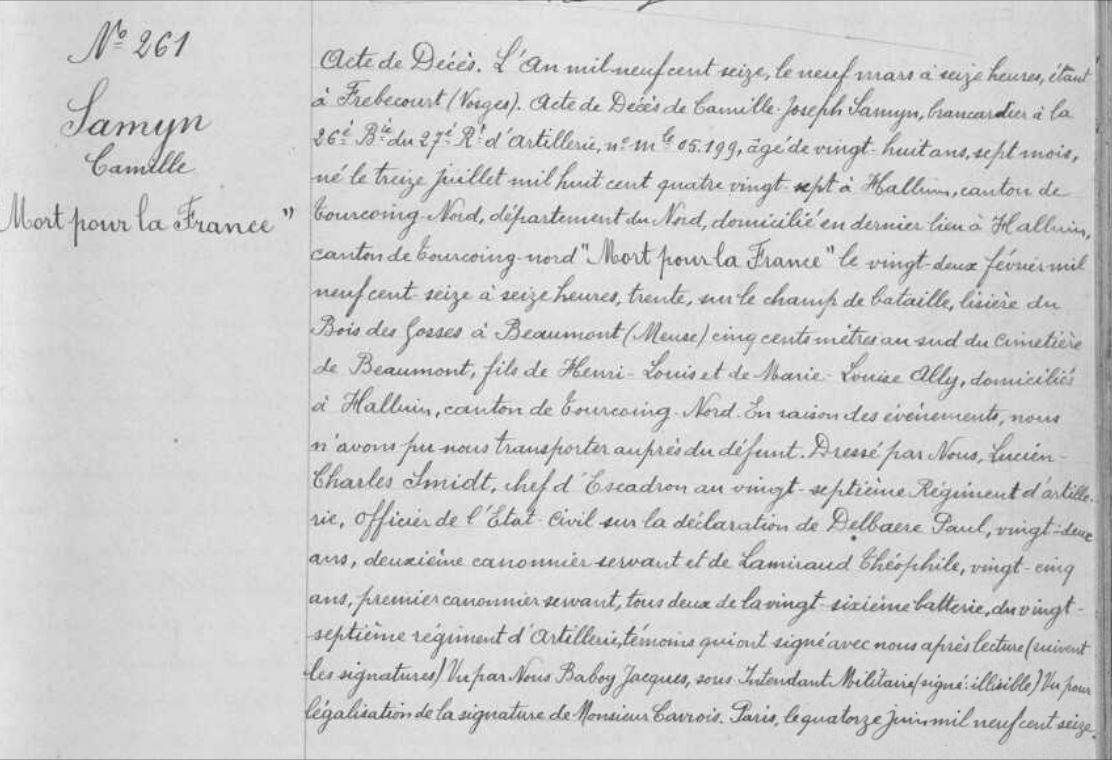 Nº 261
Samyn
Camille
Mort pour la France"
Acte de Décès. L'An mil neuf cent seize, le neuf mars à seize heures, étant
à Frebecourt (Vosges). Acte de Décès de Camille-Joseph Samyn, brancardier à la
26è Bie du 27è Rt d'Artillerie, nº mle 05.199, âgé de vingt-huit ans, sept mois,
né le treize juillet mil huit cent quatre vingt-sept à Halluin, canton de
Tourcoing-Nord, département du Nord, domicilié en dernier lieu à Halluin,
canton de Tourcoing-nord "Mort pour la France" le vingt-deux février mil
neuf cent-seize à seize heures, trente, sur le champ de bataille, lisière du
Bois des fosses à Beaumont (Meuse) cinq cents mètres au sud du cimetière
de Beaumont, fils de Henri-Louis et de Marie-Louise Ally, domiciliés
à Halluin, canton de Tourcoing-Nord. En raison des événements, nous
n'avons pu nous transporter auprès du défunt. Dressé par Nous, Lucien-
Charles Smidt, chef d'Escadron au vingt-septième Régiment d'artille-
rie, Officier de l'Etat-Civil sur la déclaration de Delbaere Paul, vingt-deux
ans, deuxième canonnier servant et de Lamiraud Théophile, vingt-cinq
ans, premier canonnier servant, tous deux de la vingt-sixième batterie, du vingt-
septième régiment d'Artillerie, témoins qui ont signé avec nous après lecture (suivent
les signatures) Vu par Nous Baboy Jacques, sous Intendant Militaire (signé: illisible) Vu pour
légalisation de la signature de Monsieur Cavrois. Paris, le quatorze Juin mil neuf cent seize.